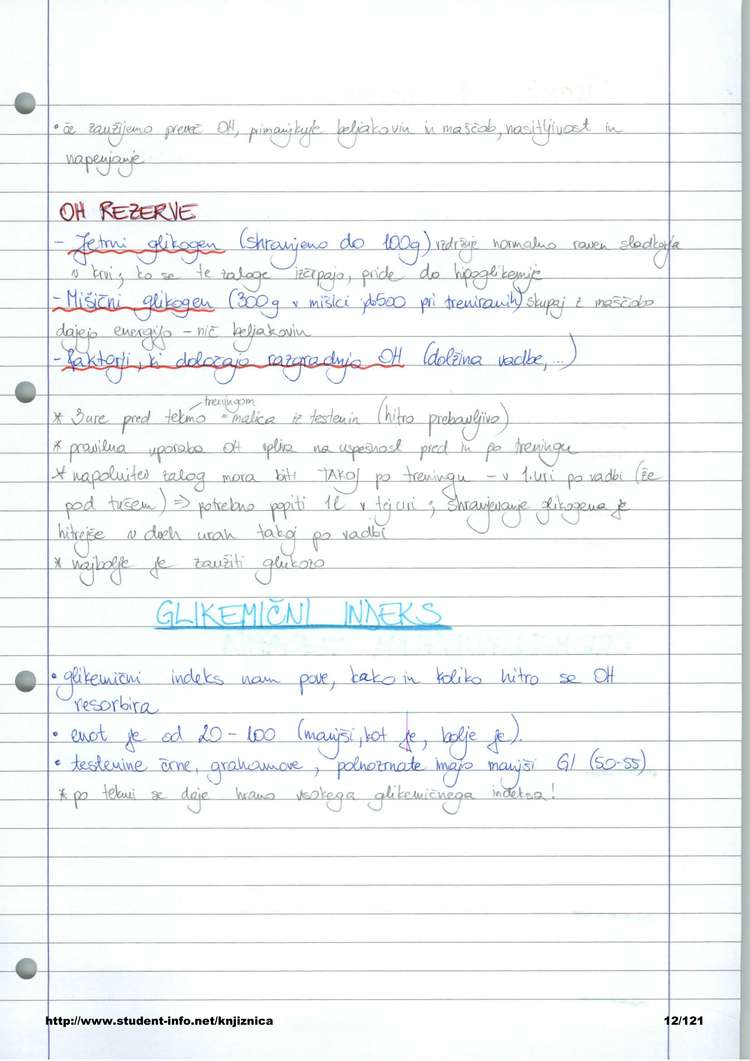 • če zaužijemo preveč OH, primanjkuje beljakovin in maščob, nasitljivost in
napenjanje
OH REZERVE
- Jetrni glikogen (shranjeno do 100g) vzdržuje normalno raven sladkorja
v krvi; ko se te zaloge izčrpajo, pride do hipoglikemije
- Mišični glikogen (300g v mišici, do 500 pri treniranih) skupaj z maščobo
dajejo energijo - nič beljakovin
- Faktorji, ki določajo razgradnjo OH (dolžina vadbe, ...)
treningom
* 3 ure pred tekmo = malica iz testenin (hitro prebavljivo)
* pravilna uporaba OH vpliva na uspešnost pred in po treningu
* napolnitev zalog mora biti TAKOJ po treningu - v 1. uri po vadbi (že
pod tušem) => potrebno popiti 1l v tej uri; shranjevanje glikogena je
hitrejše v dveh urah takoj po vadbi
* najbolje je zaužiti glukozo
GLIKEMIČNI INDEKS
• glikemični indeks nam pove, kako in koliko hitro se OH
resorbira
• enot je od 20 - 100 (manjši, kot je, bolje je).
• testenine črne, grahamove, polnozrnate imajo manjši GI (50-55)
* po tekmi se daje hrano visokega glikemičnega indeksa!
http://www.student-info.net/knjiznica
12/121